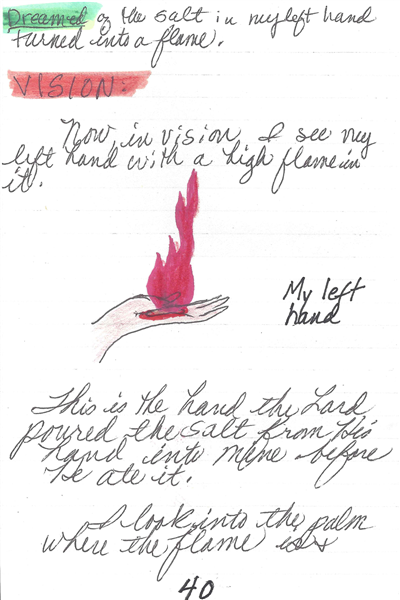 Dreamed of the salt in my left hand
turned into a flame.
VISION:
Now in vision I see my
left hand with a high flame in
it.
My left
hand
This is the hand the Lord
poured the salt from His
hand into mine before
He ate it.
I look into the palm
where the flame is &
40